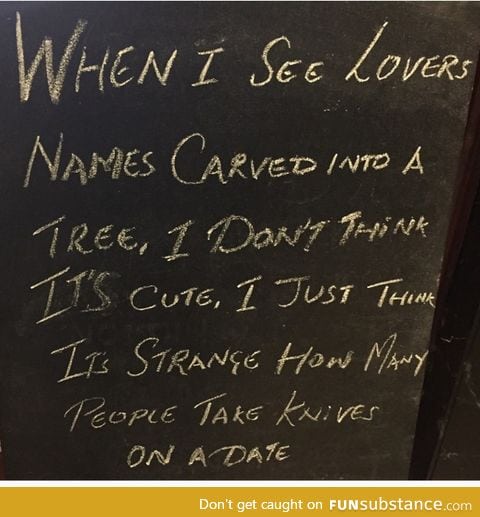 WHEN I SEE LOVERS
NAMES CARVED INTO A
TREE, I DON'T THINK
IT'S CUTE, I JUST THINK
ITS STRANGE HOW MANY
PEOPLE TAKE KNIVES
ON A DATE
Don't get caught on FUNsubstance.com